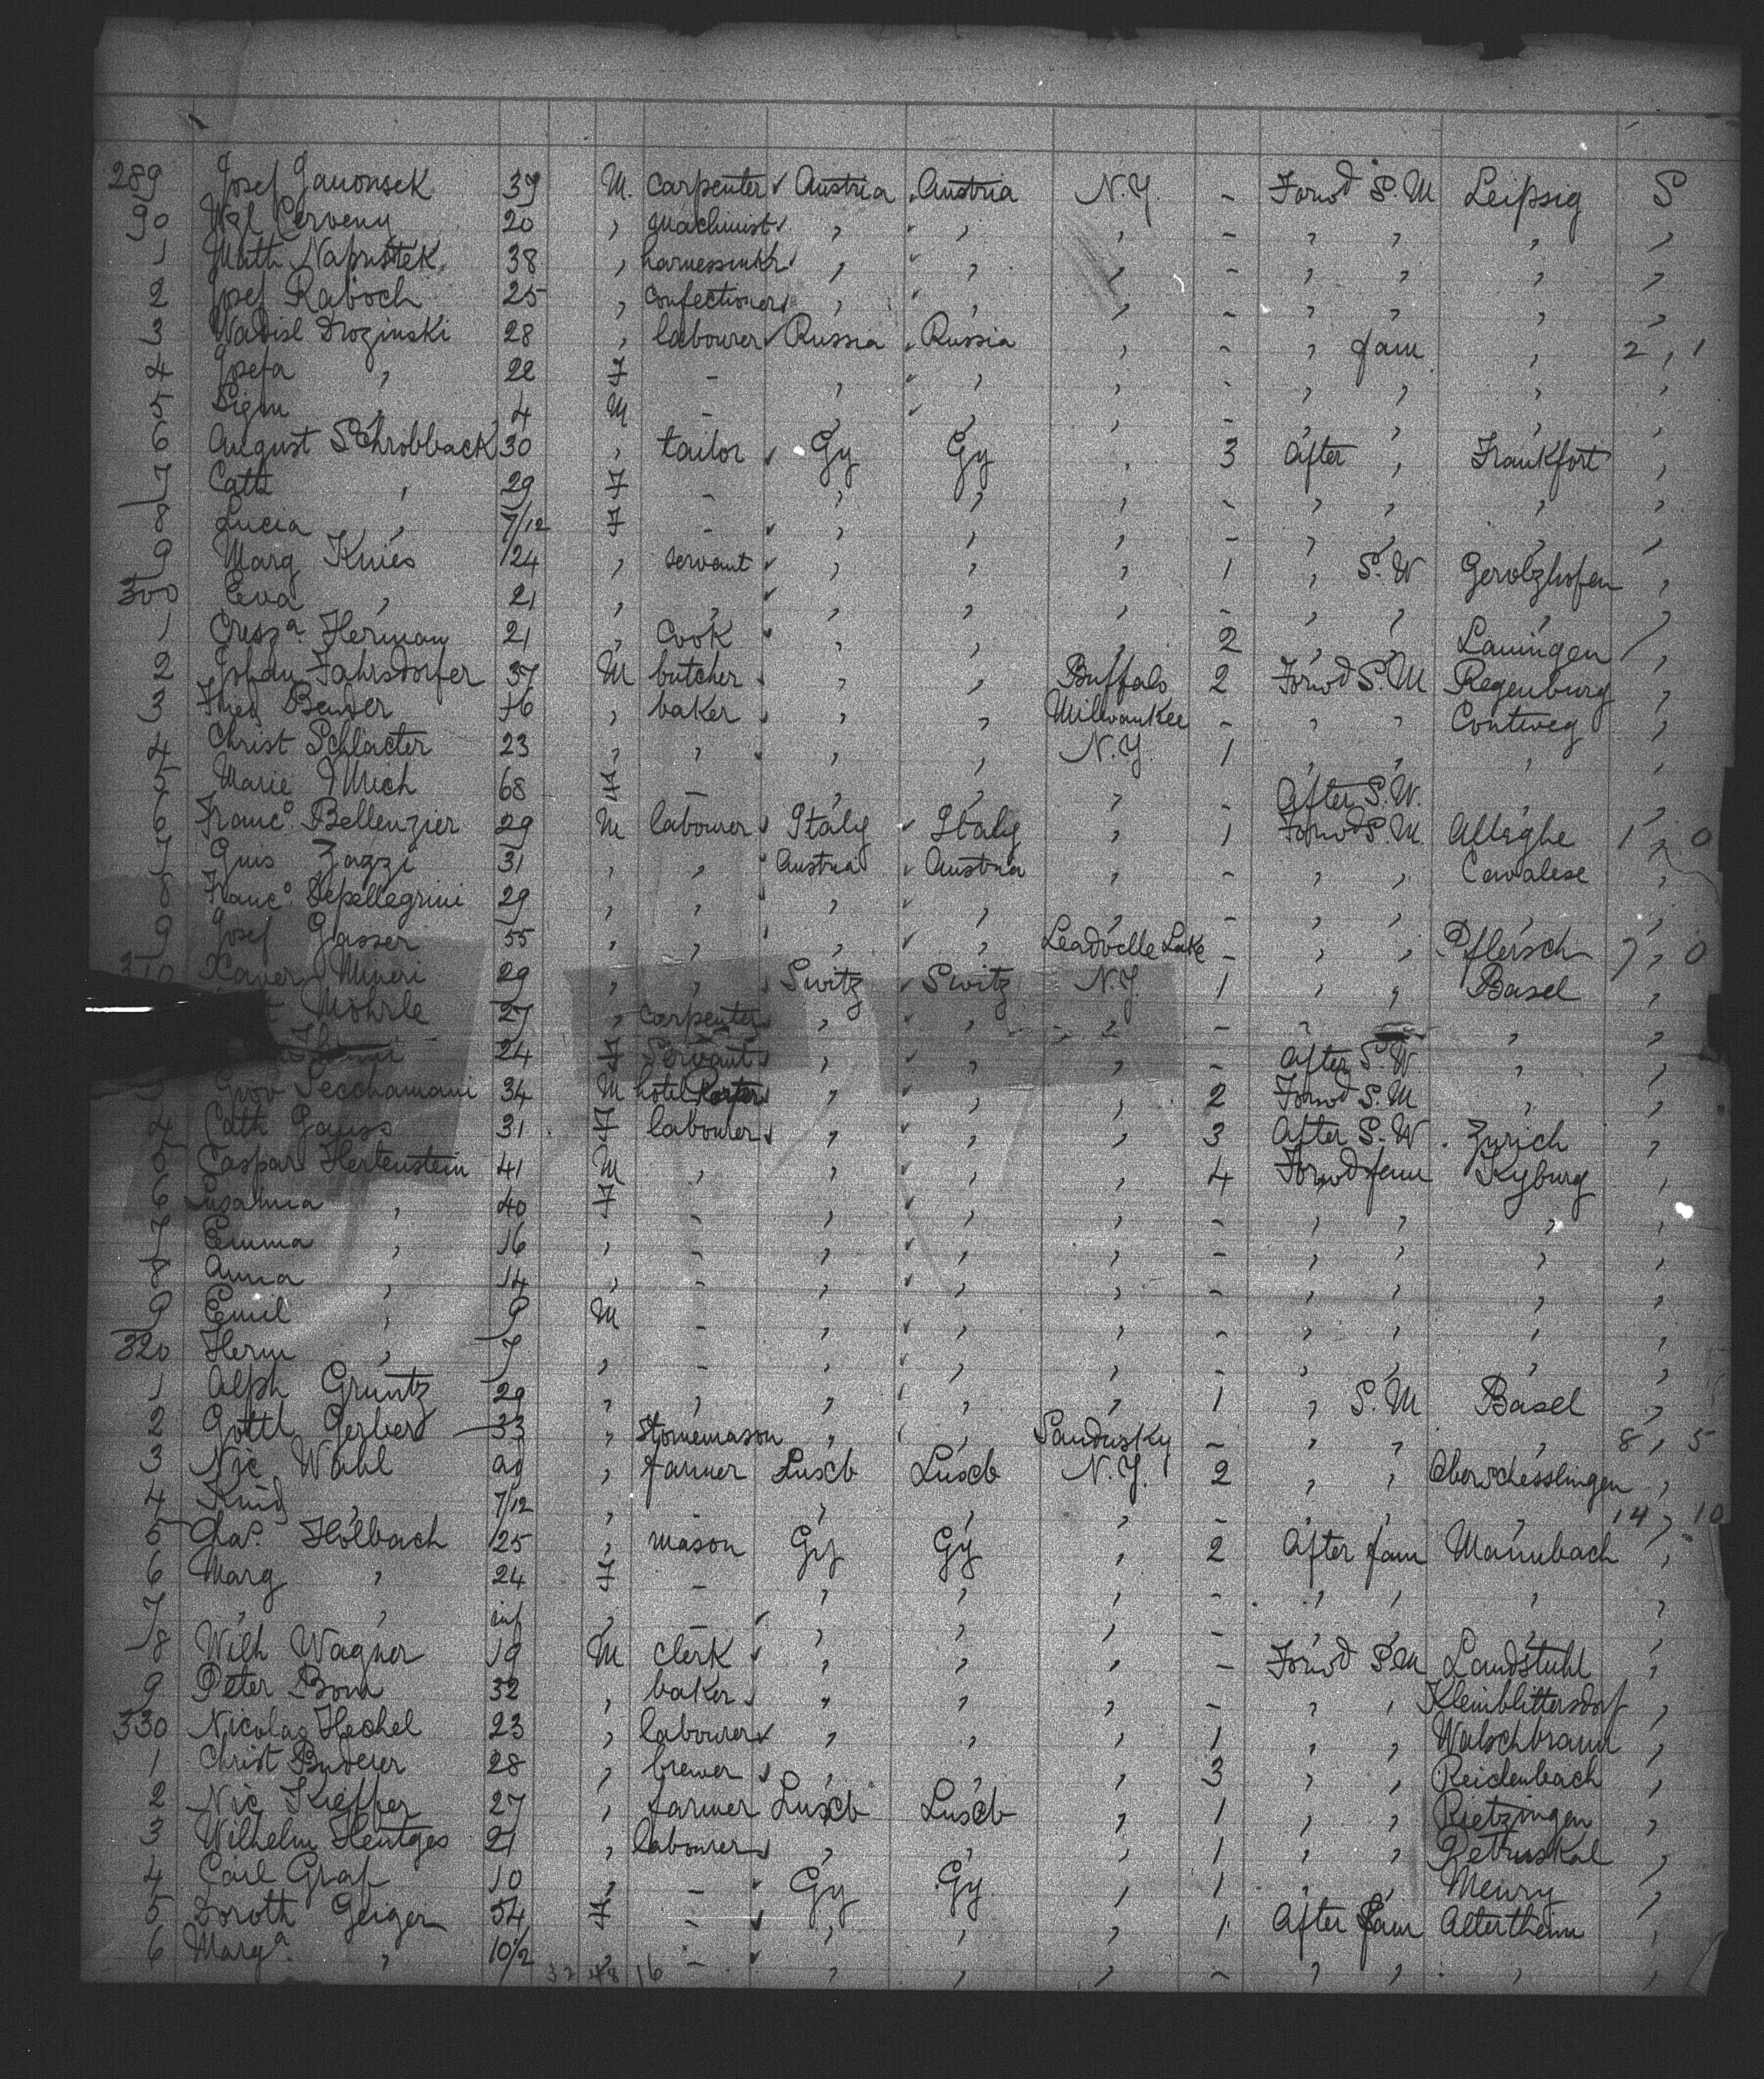 289 Josef Janousek 39 M. carpenter Austria Austria N.Y. - Forwd S.M Leipsig S
90 Wzl Cerveny 20 , machinist , , , - , , , ,
1 Math Naprstek 38 , harnessmkr , , , - , , , ,
2 Josef Raboch 25 , confectioner , , , - , , , ,
3 Wadisl Drozinski 28 , labourer Russia Russia , - , fam , 2 , 1
4 Josefa , 22 F - , , , - , , , ,
5 Sigm , 4 M - , , , - , , , ,
6 August Schrobback 30 , tailor Gy Gy , 3 After , Frankfort ,
7 Cath , 29 F - , , , - , , , ,
8 Lucia , 7/12 F - , , , - , , , ,
9 Marg Knies 24 , servant , , , 1 , S.W Gerolzhofen ,
300 Eva , 21 , , , , , - , , , ,
1 Cresza Herman 21 , Cook , , , 2 , , Lauingen ,
2 Johan Fahrsdorfer 37 M butcher , , Buffalo 2 Forwd S.M Regenburg ,
3 Fred Bender 16 , baker , , Milwaukee - , , Contweg ,
4 Christ Schlacter 23 , , , , N.Y. 1 , , , ,
5 Marie 68 F - , , , - After S.W. , ,
6 Franco Bellenzier 29 M labourer Italy Italy , 1 Forwd S.M. Alleghe 1 , 0
7 Guis Zazzi 31 , , Austria Austria , - , , Cavalese ,
8 Franco Depellegrini 29 , , , , , - , , , ,
9 Josef Gasser 55 , , , , Leadville Lake - , , Pflersch 7 , 0
310 Xaver Mineri 29 , , Switz Switz N.Y. 1 , , Basel ,
Mohrle 27 , carpenter , , , - , , ,
24 F Servant , , , - After S.W. , ,
Giov Secchamani 34 M hotel Porter , , , 2 Forwd S.M , ,
4 Cath Gauss 31 F labourer , , , 3 After S.W. Zurich ,
5 Caspar Hertenstein 41 M , , , , 4 Forwd fam Kyburg ,
6 Susanna , 40 F - , , , - , , , ,
7 Emma , 16 , - , , , - , , , ,
8 Anna , 14 , - , , , - , , , ,
9 Emil , 9 M - , , , - , , , ,
320 Herm , 7 , - , , , - , , , ,
1 Alph Gruntz 29 , , , , , 1 , S.M Basel ,
2 Gottl Gerber 33 , Stonemason , , Sandusky - , , , 8 , 5
3 Nic Wahl , farmer Luxb Luxb N.Y. 2 , , Oberschesslingen ,
4 Kind , 7/12 , , , , - , , , 14 , 10
5 Chas. Holbach 25 , mason Gy Gy , 2 After fam Mannbach ,
6 Marg , 24 F - , , , - , , , ,
7 , , inf , - , , , - , , , ,
8 Wilh Wagner 19 M clerk , , , - Forwd S M Landstuhl ,
9 Peter Born 32 , baker , , , - , , Kleinblittersdorf ,
330 Nicolas Hechel 23 , labourer , , , 1 , , Walschbraun ,
1 Christ Buderer 28 , brewer , , , 3 , , Reichenbach ,
2 Nic Kieffer 27 , farmer Luxb Luxb , 1 , , Rietzingen ,
3 Wilhelm Hentges 21 , labourer , , , 1 , , Petruskal ,
4 Carl Graf 10 , - Gy Gy , 1 , , Meury ,
5 Doroth Geiger 54 F - , , , 1 After fam Altertheim ,
6 Marga , 10 1/2 , - , , , - , , , ,
32 48 16